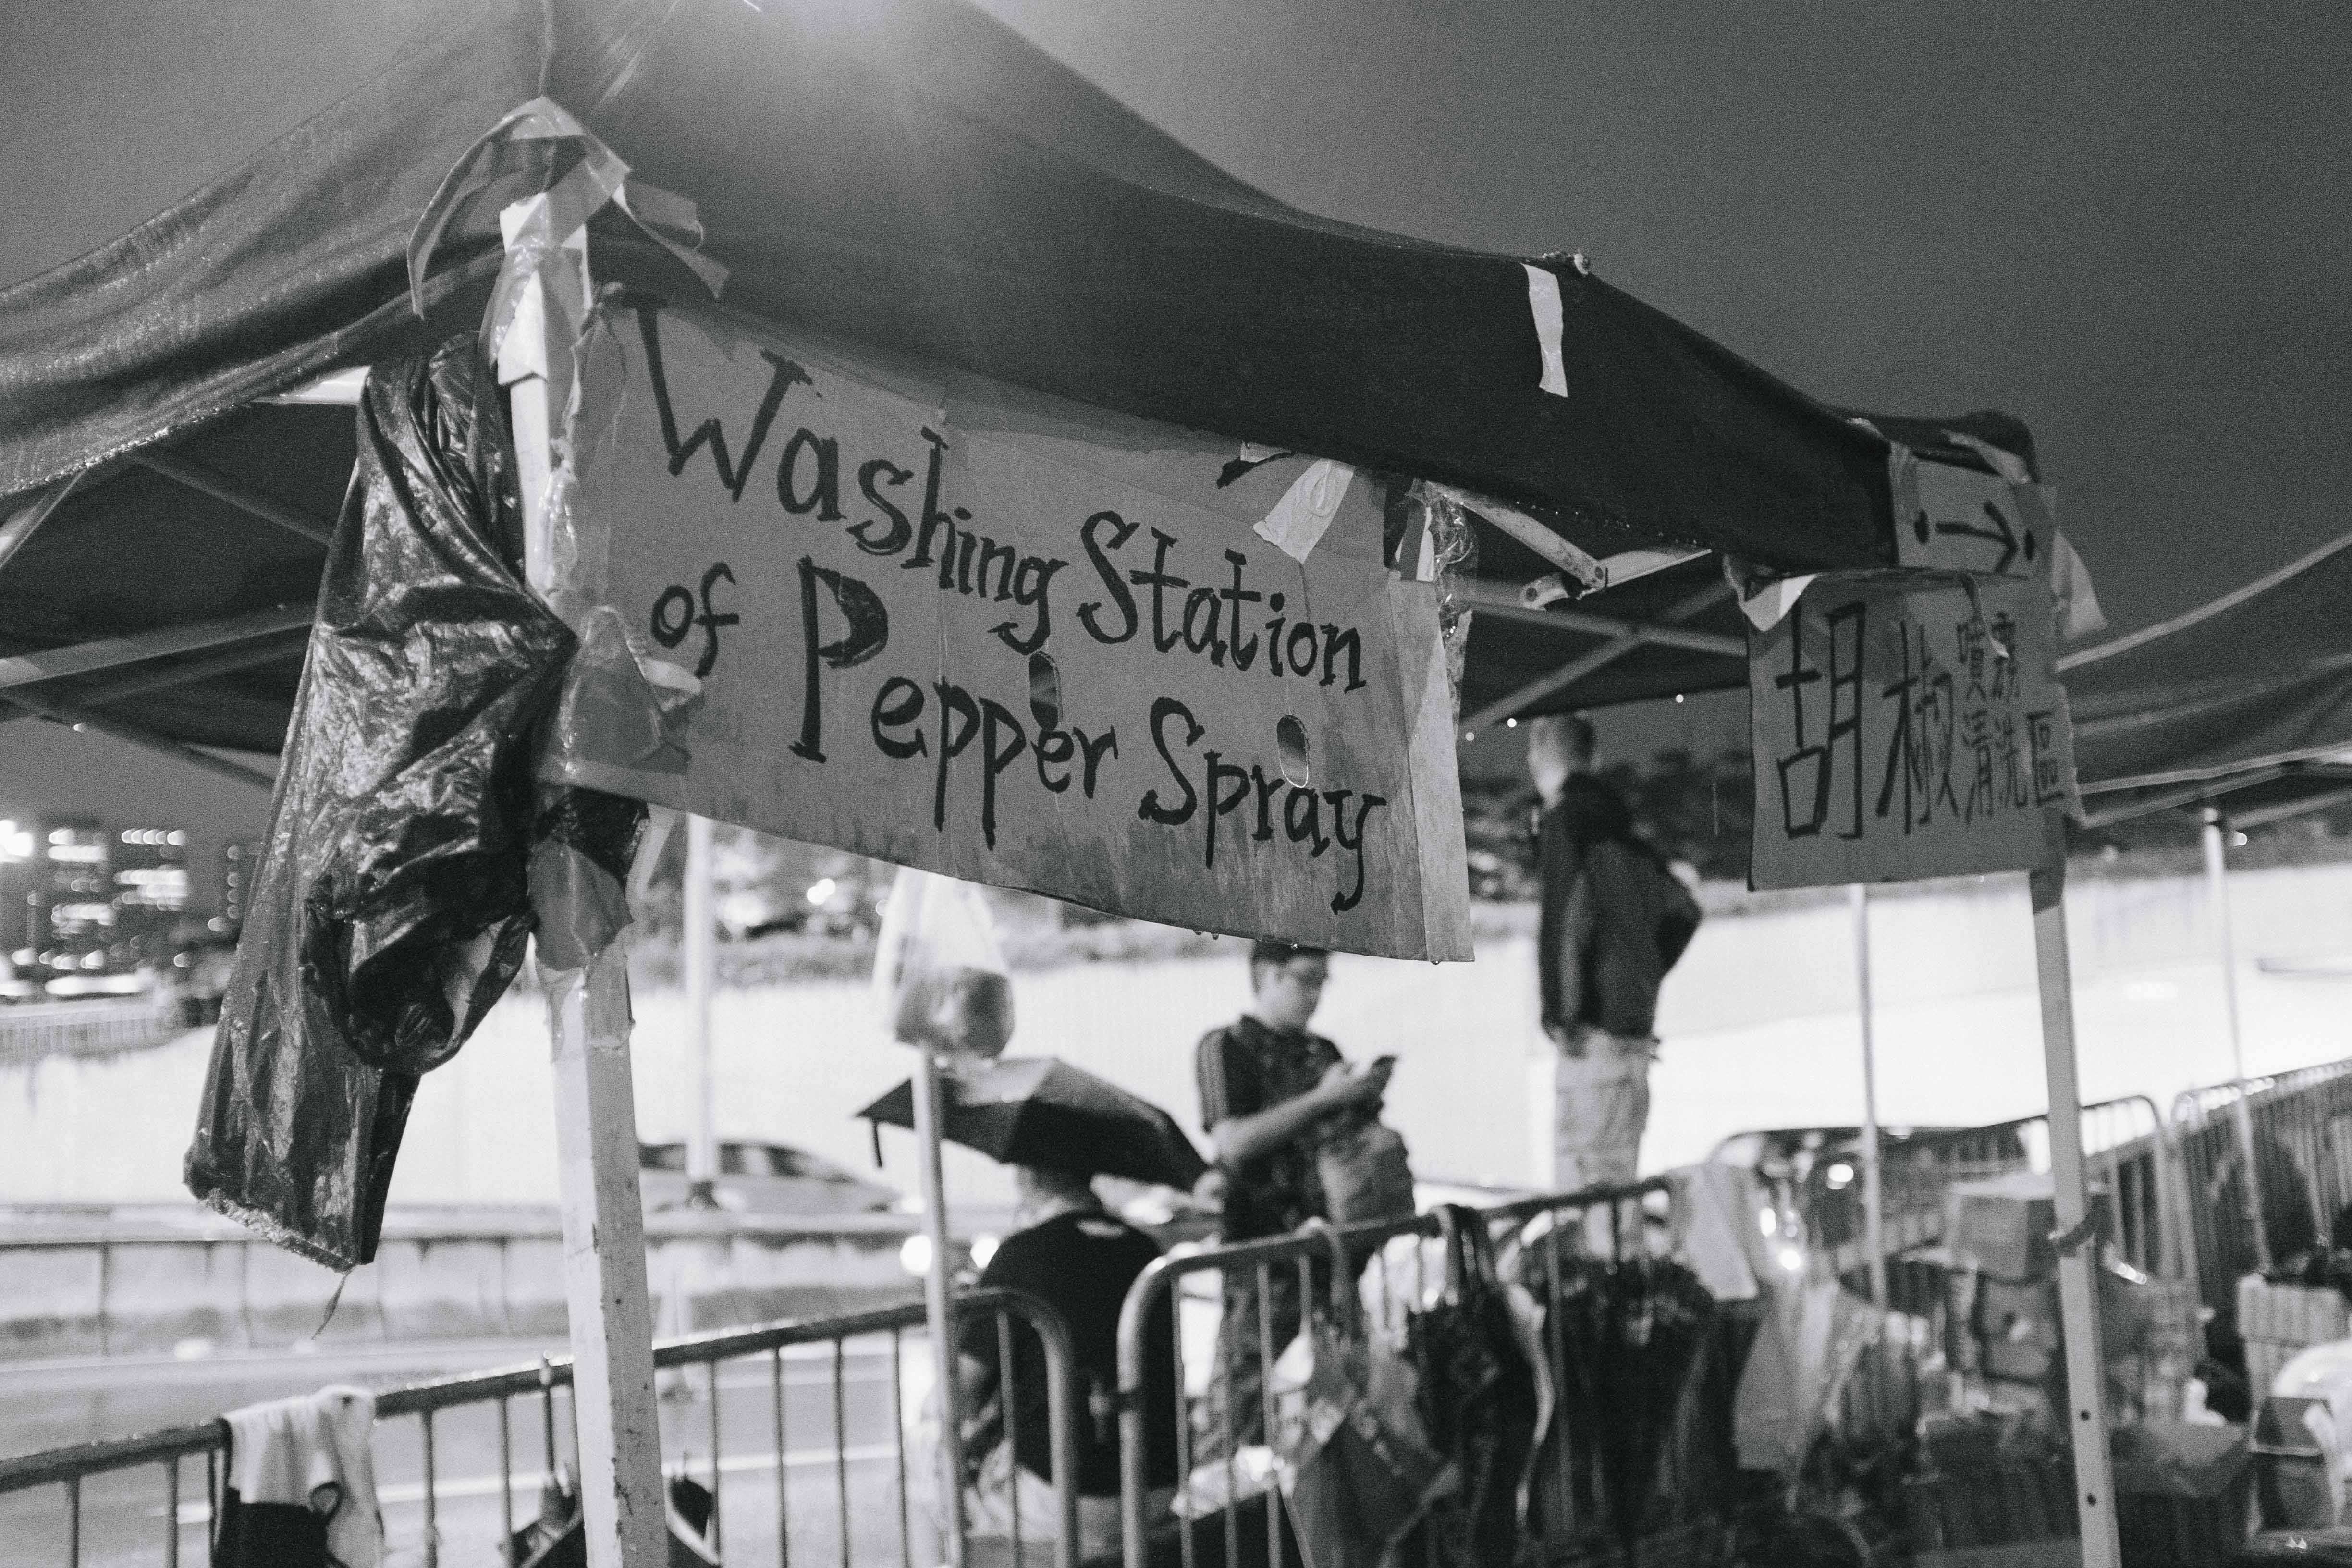 Washing Station
of Pepper Spray
→
胡椒噴霧
清洗區